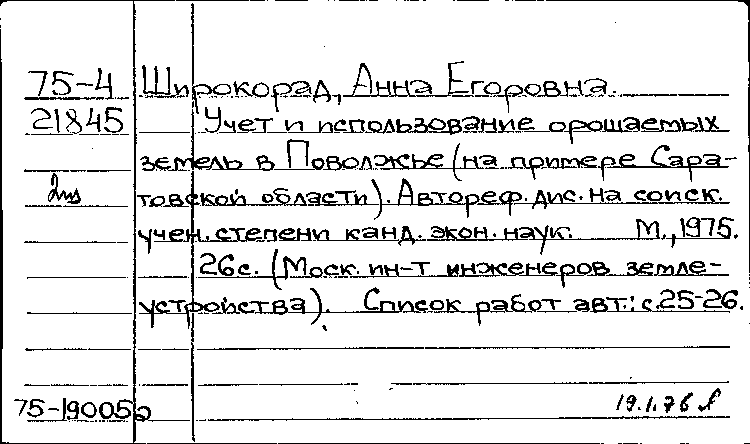 75-4 Широкорад, Анна Егоровна.
21845 Учет и использование орошаемых
земель в Поволжье (на примере Сара-
товской области). Автореф. дис. на соиск.
учен. степени канд. экон. наук. М., 1975.
26с. (Моск. ин-т инженеров земле-
устройства). Список работ авт.: с.25-26.
75-19005б 19.1.76